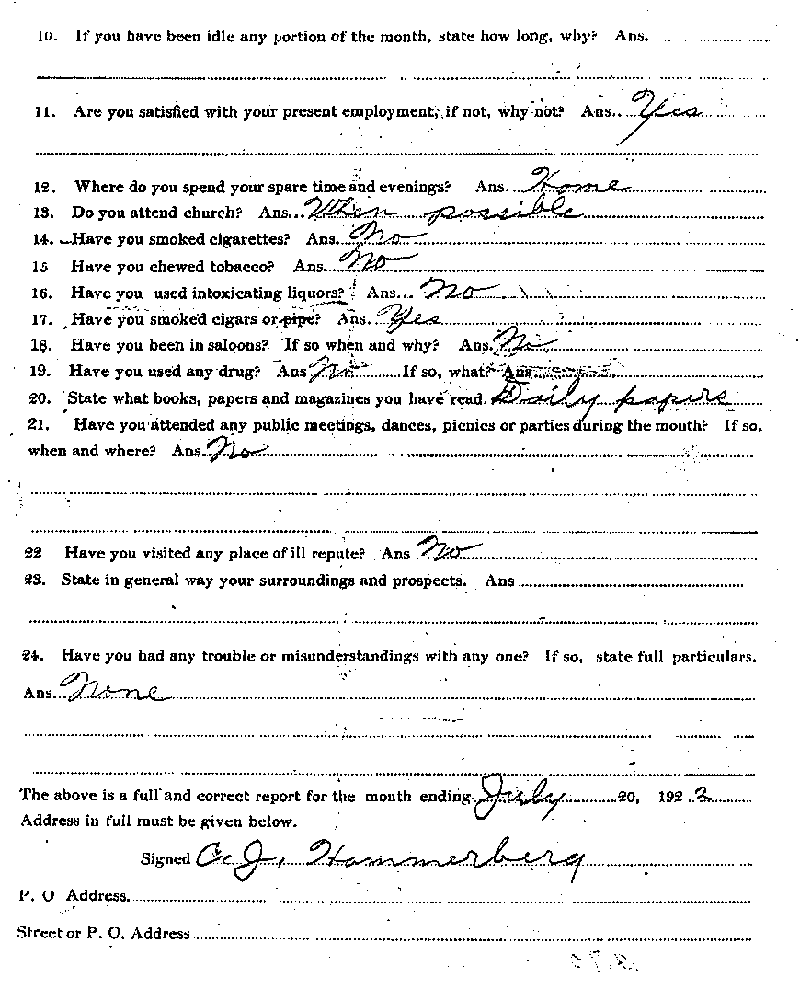 10. If you have been idle any portion of the month, state how long, why? Ans.
11. Are you satisfied with your present employment; if not, why not? Ans. Yes
12. Where do you spend your spare time and evenings? Ans. Home
13. Do you attend church? Ans. When possible
14. Have you smoked cigarettes? Ans. No
15 Have you chewed tobacco? Ans. No
16. Have you used intoxicating liquors? Ans. No
17. Have you smoked cigars or pipe? Ans. Yes
18. Have you been in saloons? If so when and why? Ans. No
19. Have you used any drug? Ans No If so, what? Ans.
20. State what books, papers and magazines you have read. Daily papers
21. Have you attended any public meetings, dances, picnics or parties during the mouth? If so,
when and where? Ans. No
22 Have you visited any place of ill repute? Ans No
23. State in general way your surroundings and prospects. Ans
24. Have you had any trouble or misunderstandings with any one? If so, state full particulars.
Ans. None
The above is a full and correct report for the month ending July 20, 1922
Address in full must be given below.
Signed J. Hammerberg
P. O Address.
Street or P. O. Address